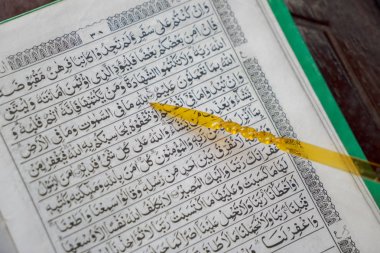 ٣٨
وَإِنْ كُنْتُمْ عَلَىٰ سَفَرٍ وَلَمْ تَجِدُوا كَاتِبًا فَرِهٰنٌ مَقْبُوضَةٌ
فَإِنْ أَمِنَ بَعْضُكُمْ بَعْضًا فَلْيُؤَدِّ الَّذِي اؤْتُمِنَ أَمَانَتَهُ وَلْيَتَّقِ
اللَّهَ رَبَّهُ وَلَا تَكْتُمُوا الشَّهَادَةَ وَمَنْ يَكْتُمْهَا فَإِنَّهُ آثِمٌ قَلْبُهُ وَ
اللَّهُ بِمَا تَعْمَلُونَ عَلِيمٌ لِلَّهِ مَا فِي السَّمٰوٰتِ وَمَا فِي الْأَرْضِ
وَإِنْ تُبْدُوا مَا فِي أَنْفُسِكُمْ أَوْ تُخْفُوهُ يُحَاسِبْكُمْ بِهِ اللَّهُ فَيَغْفِرُ لِمَنْ
يَشَاءُ وَيُعَذِّبُ مَنْ يَشَاءُ وَاللَّهُ عَلَىٰ كُلِّ شَيْءٍ قَدِيرٌ آمَنَ الرَّسُولُ
بِمَا أُنْزِلَ إِلَيْهِ مِنْ رَبِّهِ وَالْمُؤْمِنُونَ كُلٌّ آمَنَ بِاللَّهِ وَمَلٰئِكَتِهِ وَكُتُبِهِ
وَرُسُلِهِ لَا نُفَرِّقُ بَيْنَ أَحَدٍ مِنْ رُسُلِهِ وَقَالُوا سَمِعْنَا وَأَطَعْنَا
غُفْرَانَكَ رَبَّنَا وَإِلَيْكَ الْمَصِيرُ لَا يُكَلِّفُ اللَّهُ نَفْسًا إِلَّا وُسْعَهَا
لَهَا مَا كَسَبَتْ وَعَلَيْهَا مَا اكْتَسَبَتْ رَبَّنَا لَا تُؤَاخِذْنَا إِنْ نَسِينَا
أَوْ أَخْطَأْنَا رَبَّنَا وَلَا تَحْمِلْ عَلَيْنَا إِصْرًا كَمَا حَمَلْتَهُ
قَبْلِنَا رَبَّنَا وَلَا تُحَمِّلْنَا مَا لَا طَاقَةَ
وَاغْفِرْ لَنَا